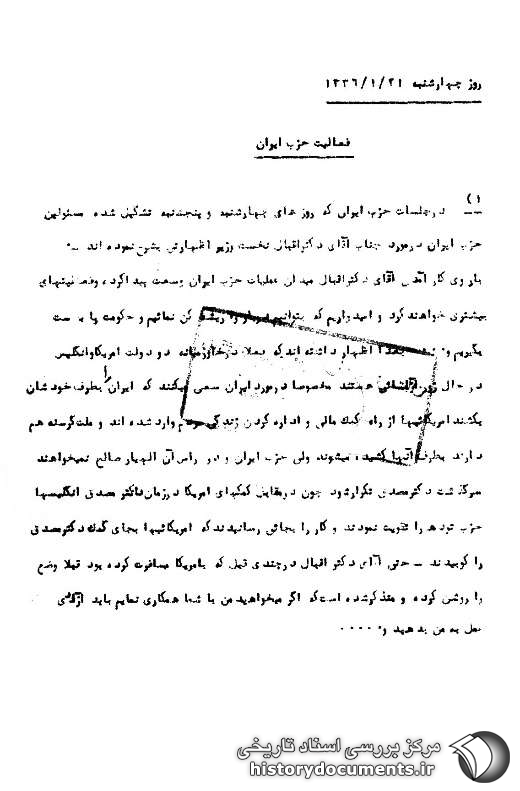 روز چهارشنبه ۱۳۳۶/۱/۲۱
فعالیت حزب ایران
۱) درجلسات حزب ایران که روزهای چهارشنبه و پنجشنبه تشکیل شده مسئولین
حزب ایران درمورد جناب آقای دکتراقبال نخست وزیر اظهاراتی بشرح نموده اند -
باروی کار آمدن آقای دکتراقبال میدان عملیات حزب ایران وسعت پیدا کرده وفعالیتهای
بیشتری خواهند کرد و امیدواریم که بتوانیم را ریشه کن نمائیم و حکومت را بدست
بگیریم و بعدا اظهار داشته اند که فعلا درخاورمیانه دو دولت امریکاوانگلیس
در حال هستند مخصوصا درمورد ایران سعی میکنند که ایران را بطرف خودشان
بکشند امریکائیها از راه کمک مالی و اداره کردن زندگی مردم وارد شده اند و ملت گرسنه هم
دارند بطرف آنها کشیده میشوند ولی حزب ایران و در راس آن الهیار صالح نمیخواهند
سرگذشت دکترمصدق تکرارشود چون درمقابل کمکهای امریکا درزمان دکتر مصدق انگلیسها
حزب توده را تقویت نمودند و کار را بجائی رسانیدند که امریکائیها بجای کمک دکترمصدق
را کوبیدند - حتی آقای دکتر اقبال درچندی قبل که بامریکا مسافرت کرده بود قبلا وضع
را روشن کرده و متذکرشده است که اگر میخواهید من با شما همکاری نمایم باید آزادی
عمل به من بدهید و ....
مرکز بررسی اسناد تاریخی
historydocuments.ir